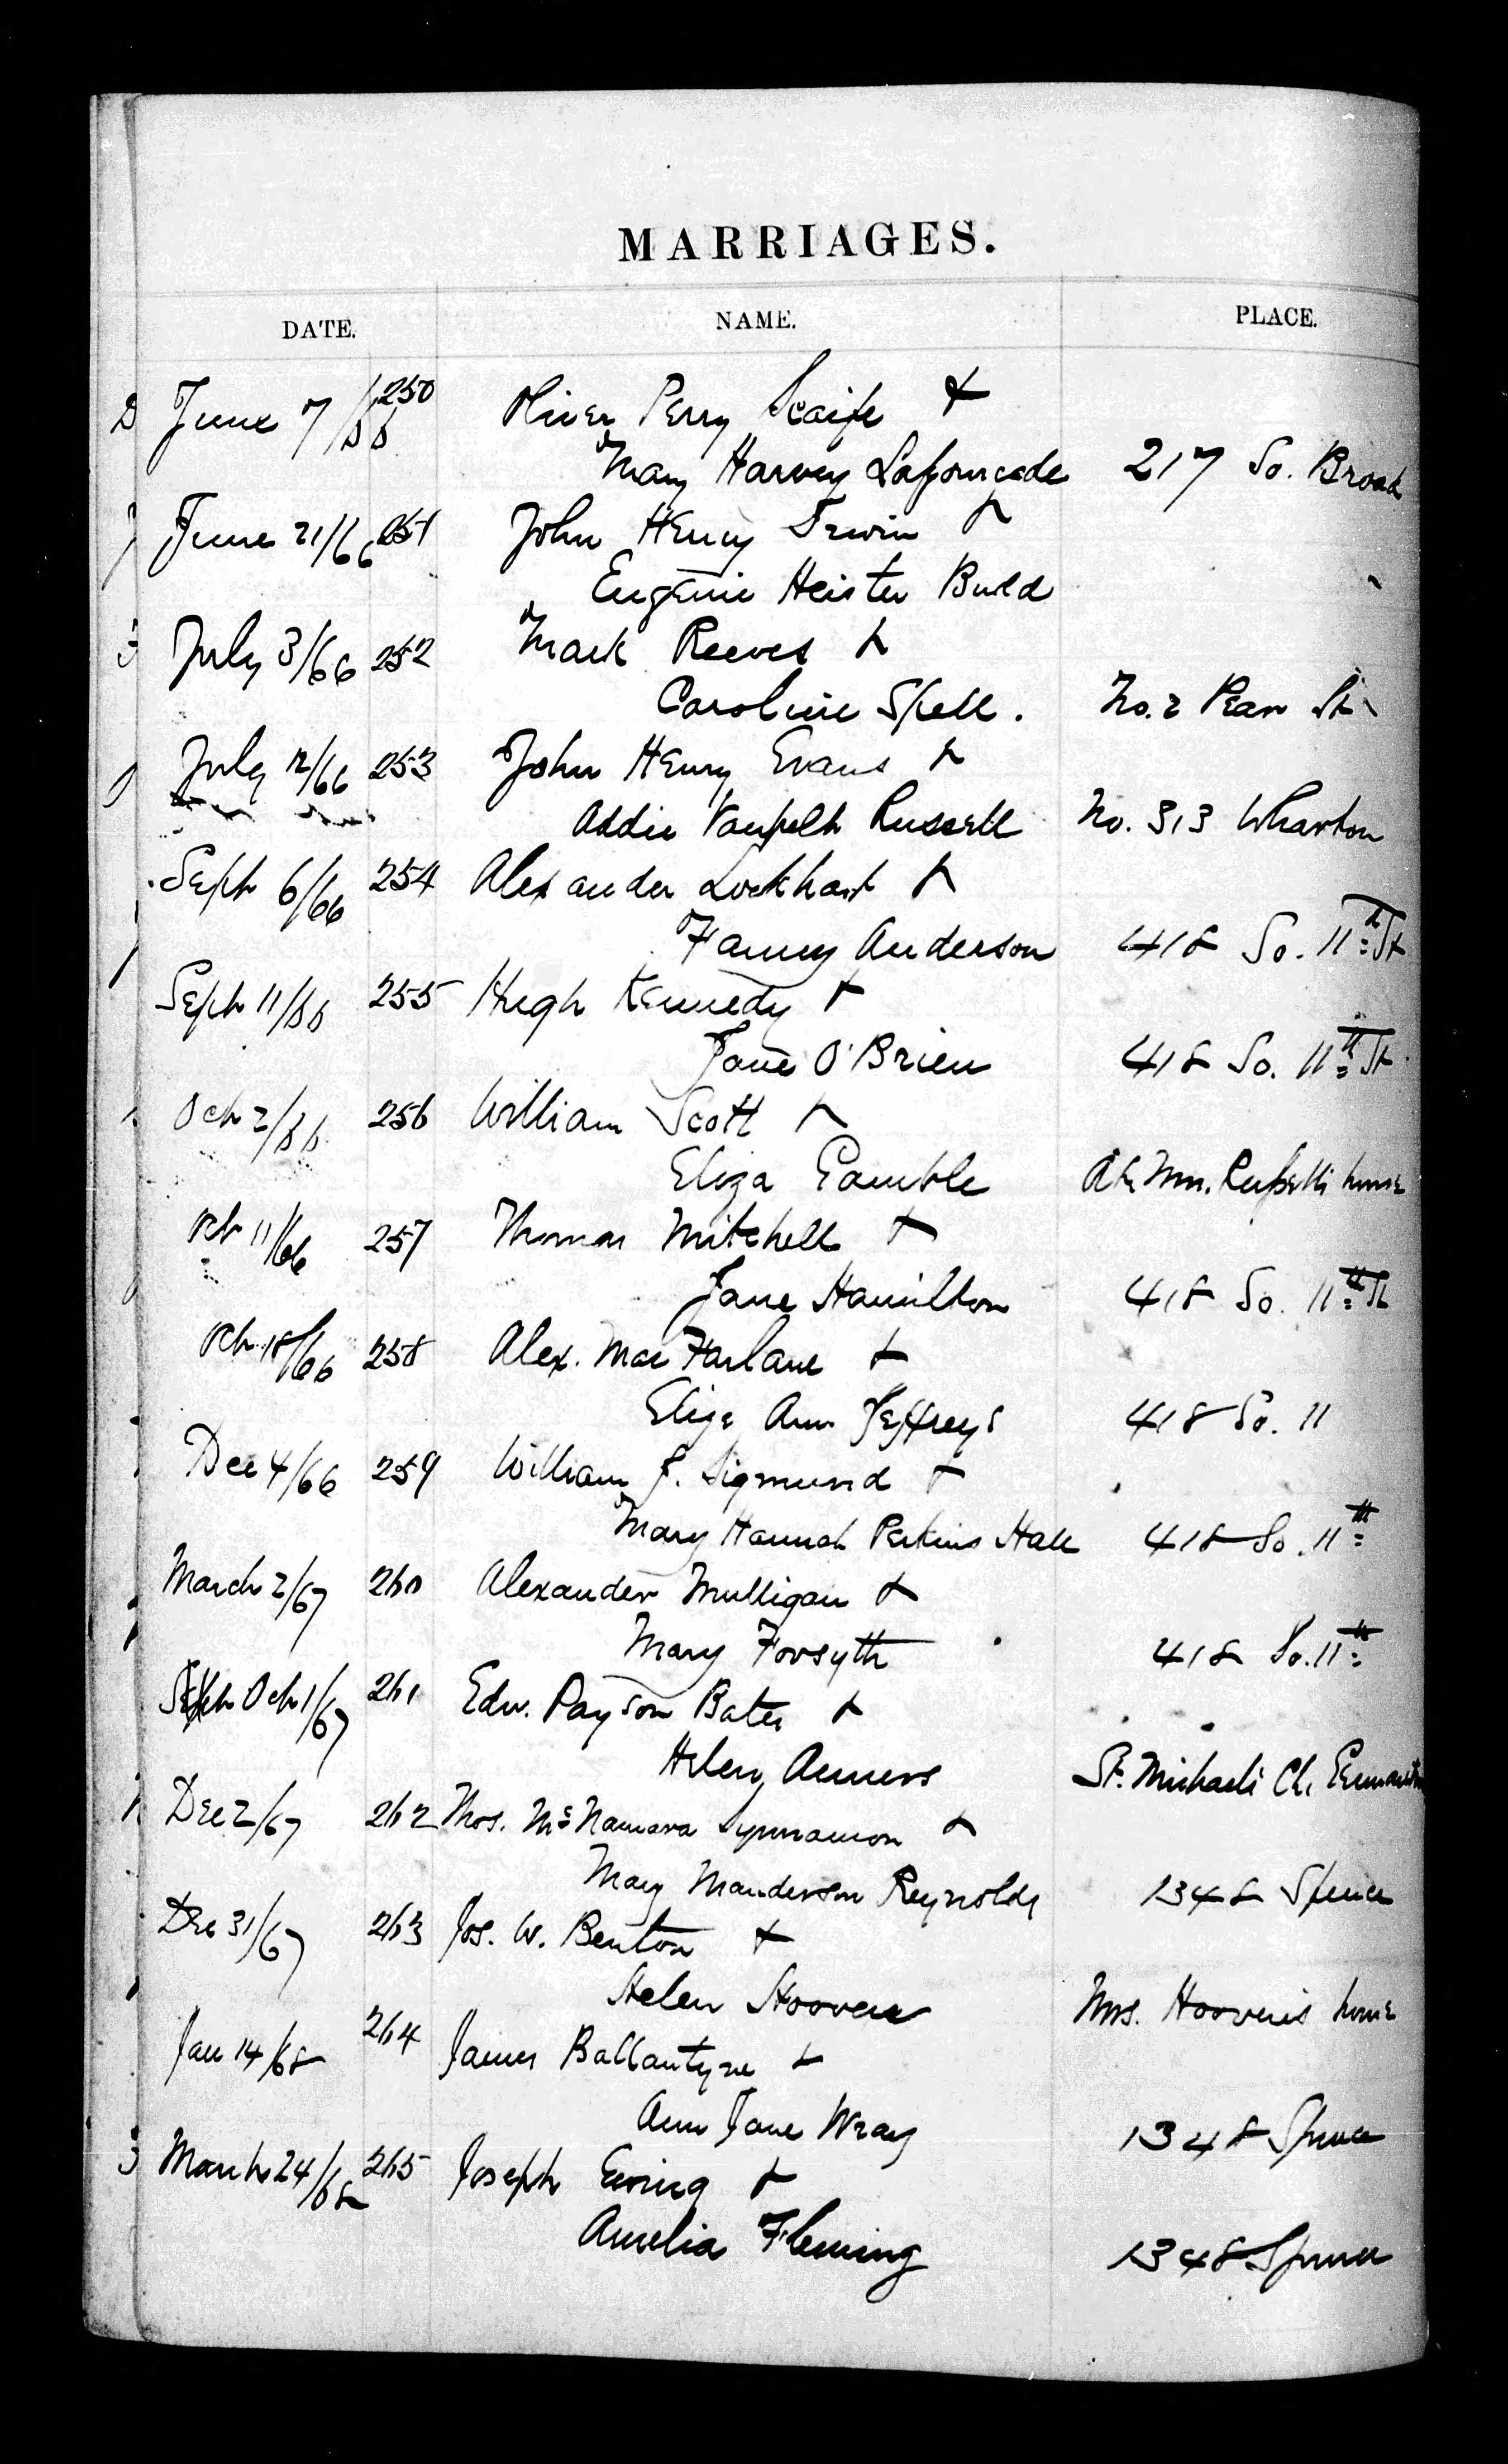 MARRIAGES.
DATE. NAME. PLACE.
June 7/66 250 Oliver Perry Scaife &
Mary Harvey Lafourcade 217 So. Broad
June 21/66 251 John Henry Irwin &
Eugenie Heister Budd
July 3/66 252 Mark Reeves &
Caroline Spell. No. 2 Pear St
July 12/66 253 John Henry Evans &
Addie Vanpelt Russell No. 313 Wharton
Sept 6/66 254 Alexander Lockhart &
Fanny Anderson 418 So. 11th St
Sept 11/66 255 Hugh Kennedy &
Jane O'Brien 418 So. 11th St
Oct 2/66 256 William Scott &
Eliza Gamble At house
Oct 11/66 257 Thomas Mitchell &
Jane Hamilton 418 So. 11th St
Oct 18/66 258 Alex. MacFarlane &
Eliza Ann Jeffreys 418 So. 11
Dec 4/66 259 William J. Sigmund &
Mary Hannah Perkins Hall 418 So. 11th
March 2/67 260 Alexander Mulligan &
Mary Forsyth 418 So. 11th
Oct 1/67 261 Edw. Payson Bates &
Helen St. Michaels Ch.
Dec 2/67 262 Thos. McNamara Synnamon &
Mary Manderson Reynolds 1348 Spruce
Dec 31/67 263 Jos. W. Benton &
Helen Hoover Mrs. Hoover's home
Jan 14/68 264 James Ballantyne &
Ann Jane Wray 1348 Spruce
March 24/68 265 Joseph Ewing &
Amelia Fleming 1348 Spruce